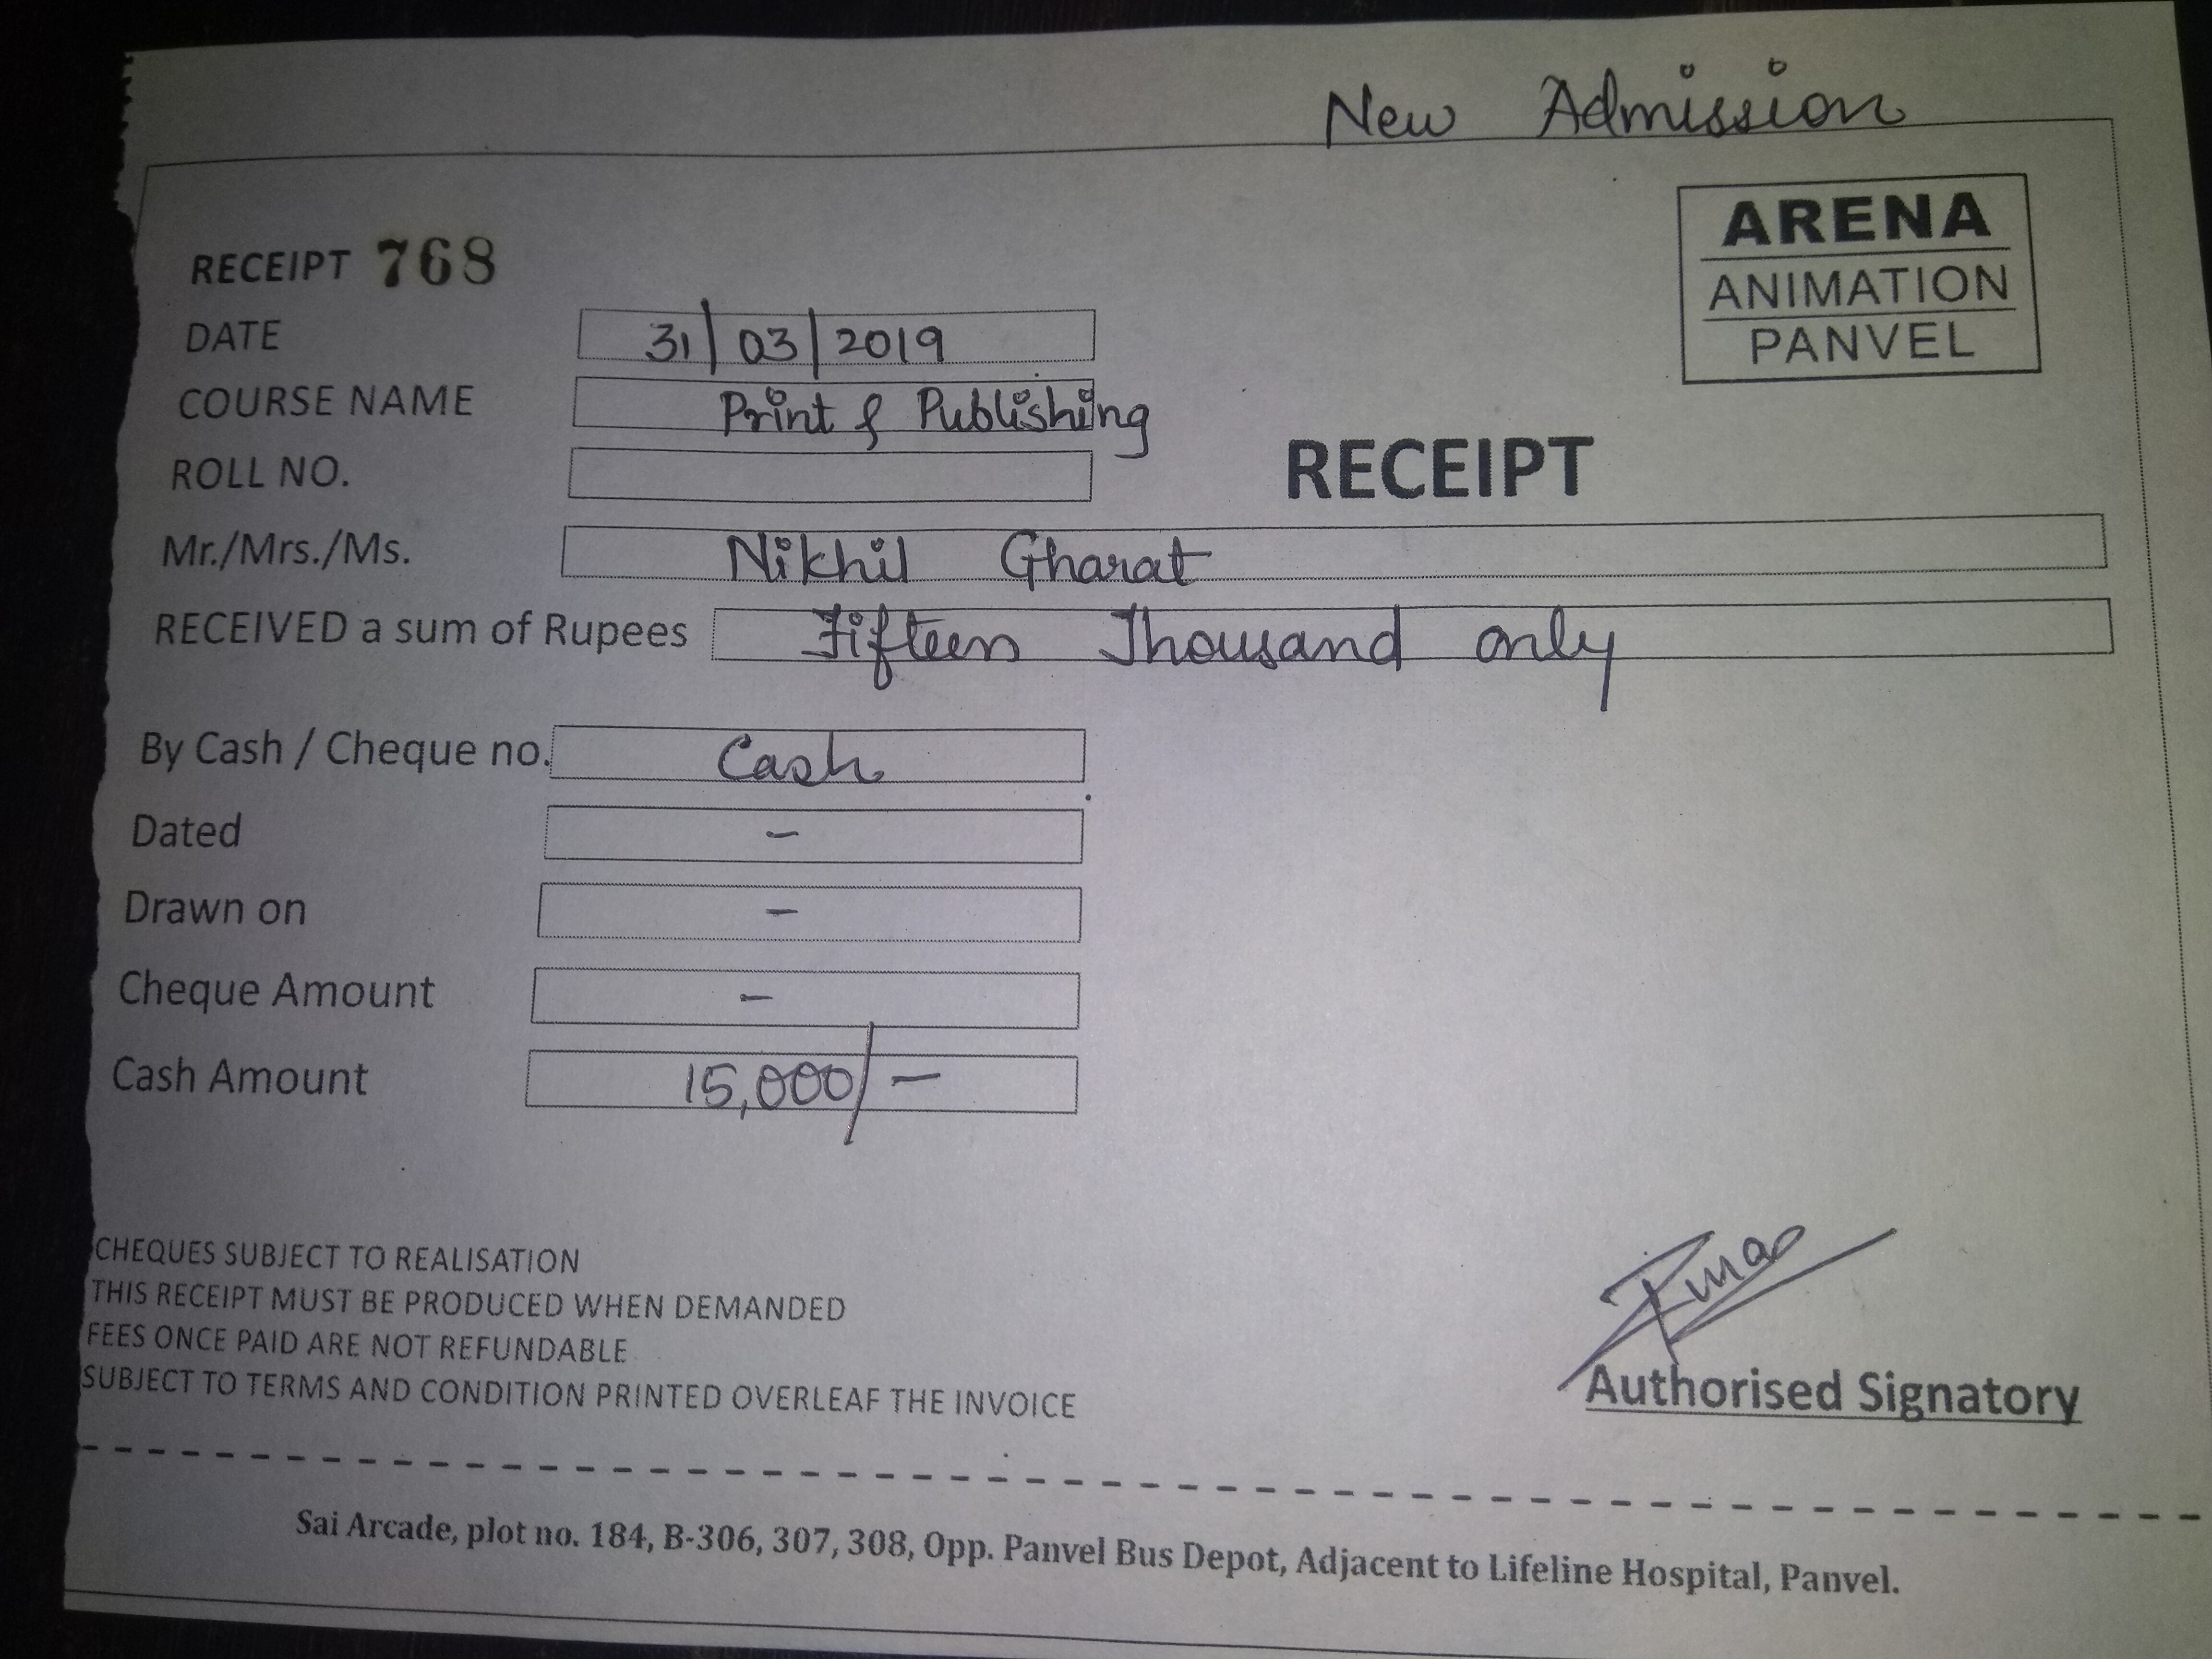 New Admission
ARENA
ANIMATION
PANVEL
RECEIPT 768
DATE 31/03/2019
COURSE NAME Print & Publishing
RECEIPT
ROLL NO.
Mr./Mrs./Ms. Nikhil Gharat
RECEIVED a sum of Rupees Fifteen Thousand only
By Cash / Cheque no. Cash
Dated -
Drawn on -
Cheque Amount -
Cash Amount 15,000/-
CHEQUES SUBJECT TO REALISATION
THIS RECEIPT MUST BE PRODUCED WHEN DEMANDED
FEES ONCE PAID ARE NOT REFUNDABLE
SUBJECT TO TERMS AND CONDITION PRINTED OVERLEAF THE INVOICE
Authorised Signatory
Sai Arcade, plot no. 184, B-306, 307, 308, Opp. Panvel Bus Depot, Adjacent to Lifeline Hospital, Panvel.